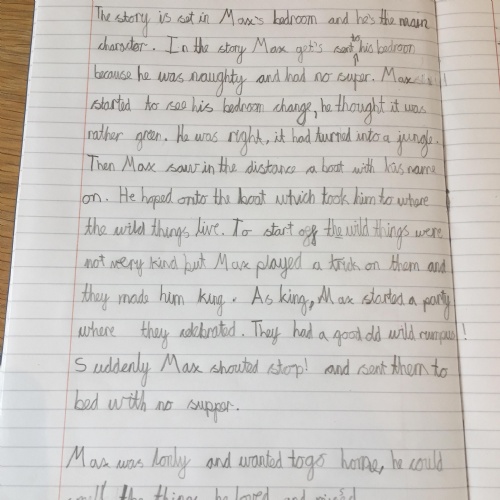 The story is set in Max's bedroom and he's the main
character. In the story Max get's sent to his bedroom
because he was naughty and had no super. Max
started to see his bedroom change, he thought it was
rather green. He was right, it had turned into a jungle.
Then Max saw in the distance a boat with his name
on. He hoped onto the boat which took him to where
the wild things live. To start off the wild things were
not very kind but Max played a trick on them and
they made him king. As king, Max started a party
where they celebrated. They had a good old wild rumpus!
Suddenly Max shouted stop! and sent them to
bed with no supper.
Max was lonly and wanted to go home, he could
smell the things he loved and missed